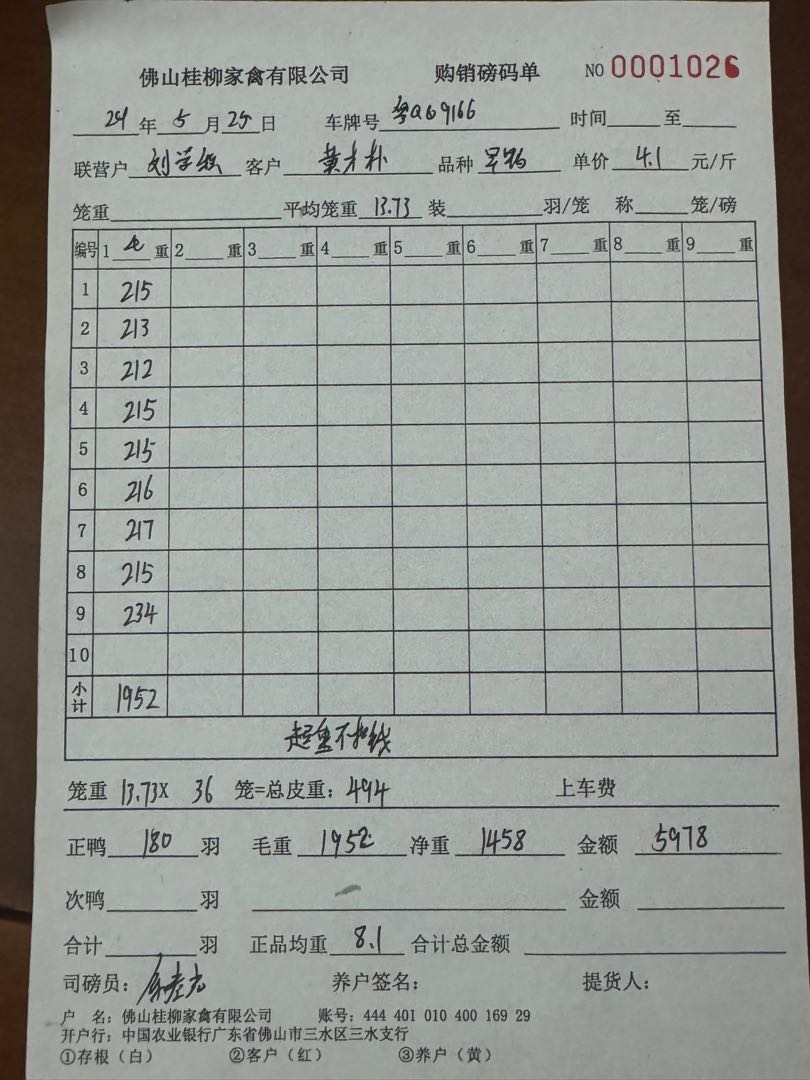 佛山桂柳家禽有限公司 购销磅码单 NO 0001026
24年5月25日 车牌号 粤Q69166 时间 至
联营户 客户 品种 单价 4.1 元/斤
笼重 平均笼重 13.73 装 羽/笼 称 笼/磅
编号 1 4 重 2 重 3 重 4 重 5 重 6 重 7 重 8 重 9 重
1 215
2 213
3 212
4 215
5 215
6 216
7 217
8 215
9 234
10
小计 1952
超重不扣钱
笼重 13.73X 36 笼=总皮重：494 上车费
正鸭 180 羽 毛重 1952 净重 1458 金额 5978
次鸭 羽 金额
合计 羽 正品均重 8.1 合计总金额
司磅员： 养户签名： 提货人：
户 名：佛山桂柳家禽有限公司 账号：444 401 010 400 169 29
开户行：中国农业银行广东省佛山市三水区三水支行
①存根（白） ②客户（红） ③养户（黄）